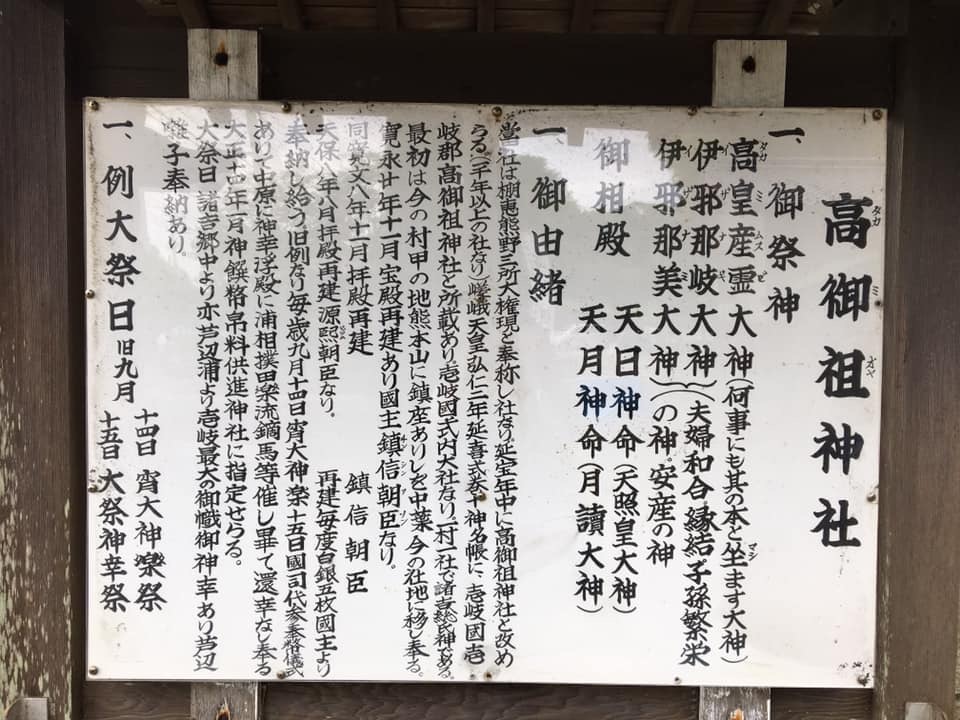 高御祖神社
一、御祭神
高皇産霊大神(何事にも其の本と坐ます大神)
伊邪那岐大神)夫婦和合、縁結、子孫繁栄
伊邪那美大神)の神。安産の神
御相殿 天日神命(天照皇大神)
天月神命(月讀大神)
一、御由緒
当社は棚恵熊野三所大権現と奉称し社なり。延宝年中に高御祖神社と改め
らる(千年以上の社なり)嵯峨天皇弘仁二年延喜式巻十神名帳に、壱岐國壱
岐郡高御祖神社と所載あり壱岐國式内大社なり。一村一社で諸吉の氏神である。
最初は今の村甲の地熊本山に鎮座ありしを中葉今の社地に移し奉る。
寛永廿年十一月宝殿再建あり國主鎮信朝臣なり。
同寛文八年十一月拝殿再建 鎮信朝臣
天保八年八月拝殿再建源熈朝臣なり。 再建毎度白銀五枚國主より
奉納し給う。旧例なり毎歳九月十四日宵大神楽十五日國司代参奉幣儀式
ありて中原に神幸浮殿に浦相撲田楽流鏑馬等催し畢て還幸なし奉る
大正十四年一月神饌幣帛料供進神社に指定せらる。
大祭日 諸吉郷中より亦芦辺浦より壱岐最大の御幟御神幸あり芦辺
囃子奉納あり。
一、例大祭日 旧九月 十四日 宵大神樂祭
十五日 大祭神幸祭